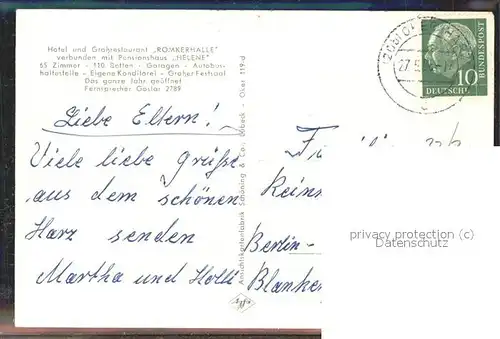 Hotel und Großrestaurant „ROMKERHALLE"
verbunden mit Pensionshaus „HELENE"
65 Zimmer - 110 Betten - Garagen - Autobus-
haltestelle - Eigene Konditorei - Großer Festsaal
Das ganze Jahr geöffnet
Fernsprecher Goslar 2789
Liebe Eltern!
Viele liebe Grüße
aus dem schönen
Harz senden
Martha und
Ansichtskartenfabrik Schöning & Co., Lübeck - Oker 119d
27.5
10
DEUTSCHE
BUNDESPOST
Berlin-
privacy protection (c)
Datenschutz